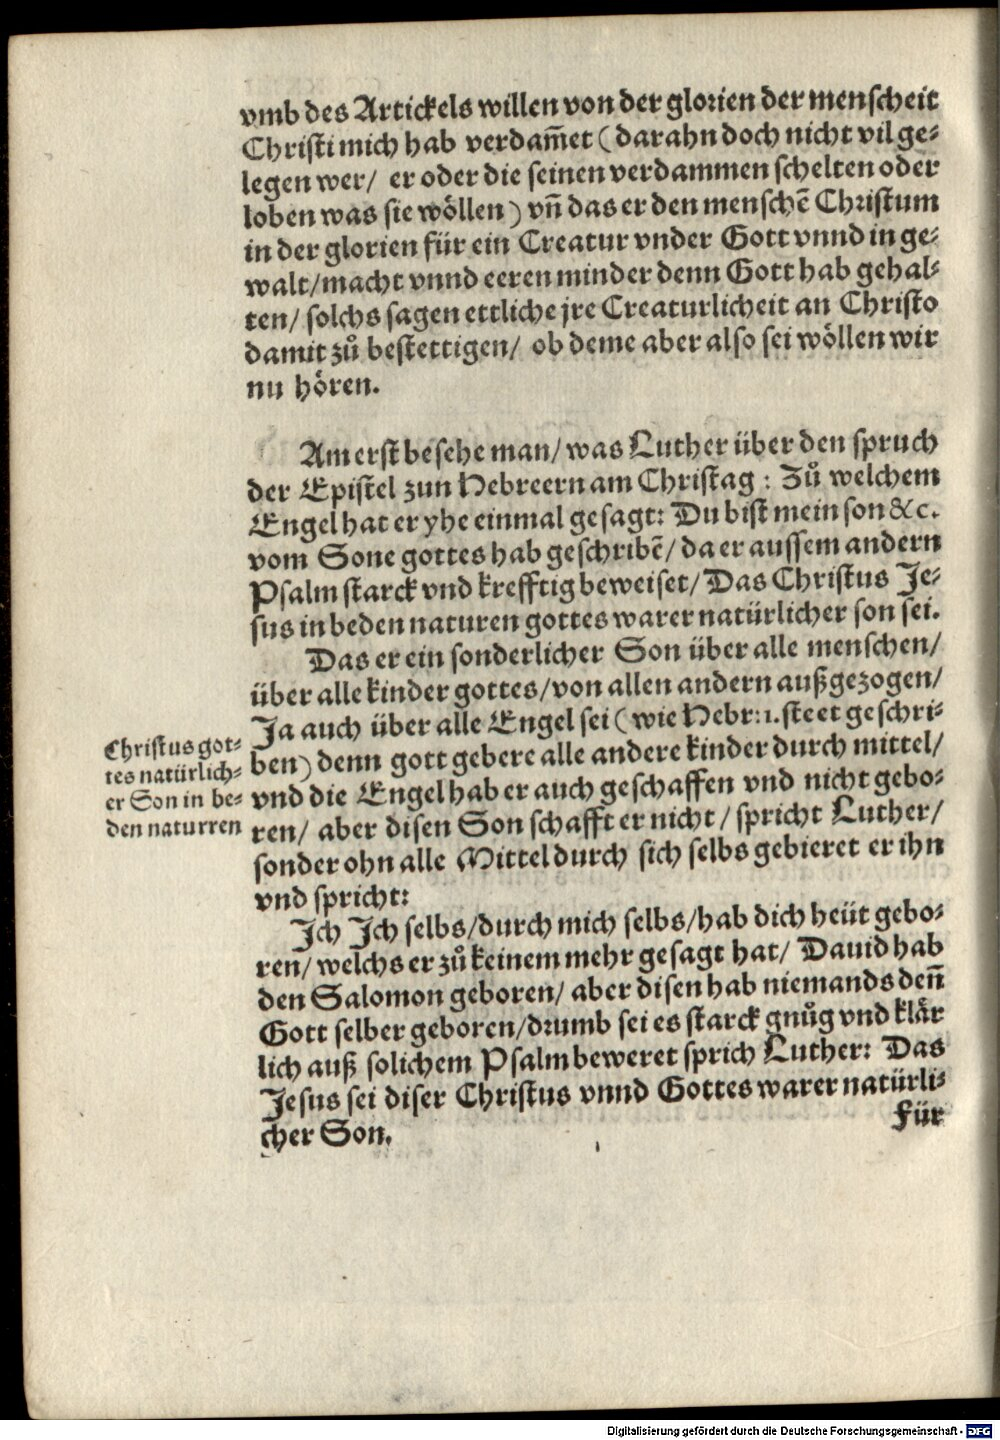 vmb des Artickels willen von der glorien der menscheit
Christi mich hab verdam̃et (darahn doch nicht vil ge-
legen wer/ er oder die seinen verdammen schelten oder
loben was sie wöllen) vñ das er den menschẽ Christum
in der glorien für ein Creatur vnder Gott vnnd in ge-
walt/macht vnnd eeren minder denn Gott hab gehal-
ten/ solchs sagen ettliche jre Creaturlicheit an Christo
damit zů bestettigen/ ob deme aber also sei wöllen wir
nu hören.
Am erst besehe man/ was Luther über den spruch
der Epistel zun Hebreern am Christag : Zů welchem
Engel hat er yhe einmal gesagt: Du bist mein son &c.
vom Sone gottes hab geschribẽ/ da er aussem andern
Psalm starck vnd krefftig beweiset/ Das Christus Je-
sus in beden naturen gottes warer natürlicher son sei.
Das er ein sonderlicher Son über alle menschen/
über alle kinder gottes/von allen andern außgezogen/
Ja auch über alle Engel sei (wie Hebr:1.steet geschri-
ben) denn gott gebere alle andere kinder durch mittel/
vnd die Engel hab er auch geschaffen vnd nicht gebo-
ren/ aber disen Son schafft er nicht / spricht Luther/
sonder ohn alle Mittel durch sich selbs gebieret er ihn
vnd spricht:
Christus got-
tes natürlich-
er Son in be-
den naturren
Ich Ich selbs/durch mich selbs/hab dich heüt gebo-
ren/ welchs er zů keinem mehr gesagt hat/ Dauid hab
den Salomon geboren/ aber disen hab niemands deñ
Gott selber geboren/drumb sei es starck gnůg vnd klär
lich auß solichem Psalm beweret sprich Luther: Das
Jesus sei diser Christus vnnd Gottes warer natürli-
cher Son.
Für
Digitalisierung gefördert durch die Deutsche Forschungsgemeinschaft - DFG